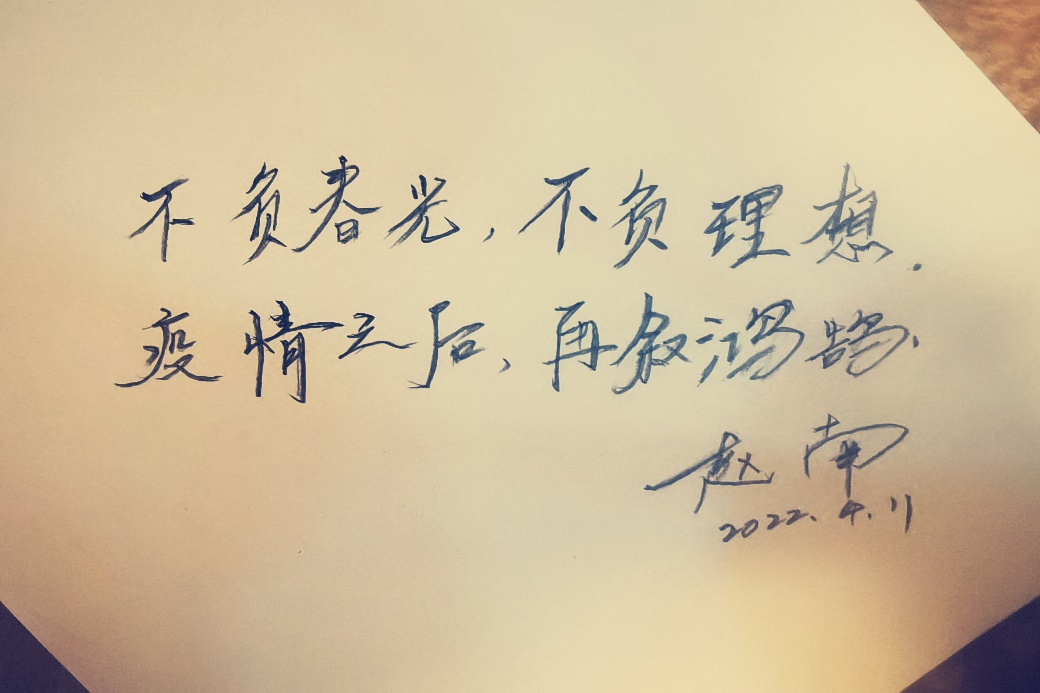 不负春光,不负理想.
疫情之后,再叙鸿鹄.
赵南
2022.4.11